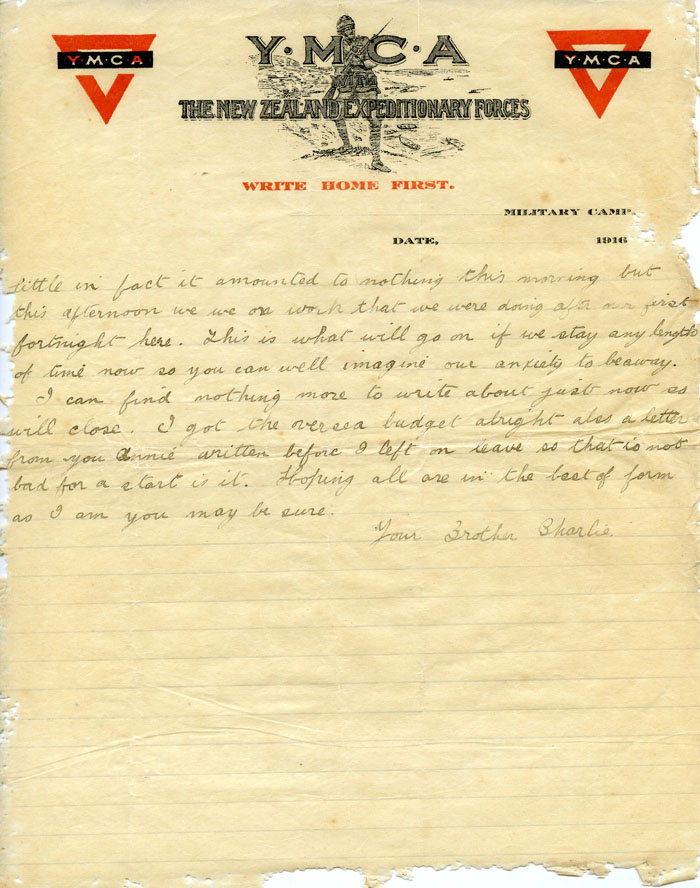 Y·M·C·A
Y·M·C·A
Y·M·C·A
WITH
THE NEW ZEALAND EXPEDITIONARY FORCES
WRITE HOME FIRST.
MILITARY CAMP.
DATE, 1916
little in fact it amounted to nothing this morning but
this afternoon we we on work that we were doing after our first
fortnight here. This is what will go on if we stay any length
of time now so you can well imagine our anxiety to beaway.
I can find nothing more to write about just now so
will close. I got the oversea budget alright also a letter
from you Annie written before I left on leave so that is not
bad for a start is it. Hoping all are in the best of form
as I am you may be sure.
Your Brother Charlie.